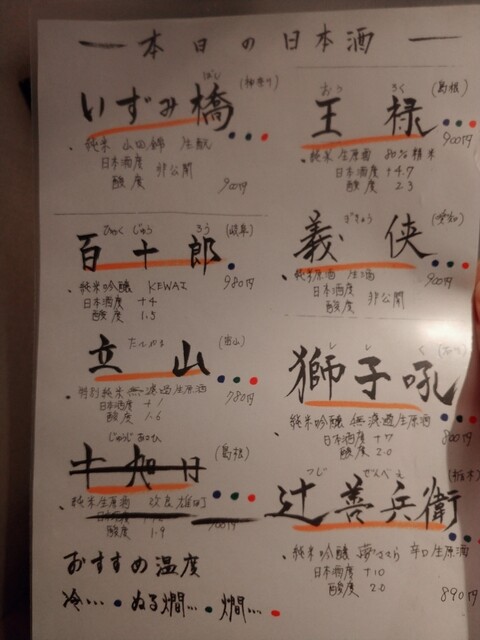 本日の日本酒
いずみ橋
ばし
(神奈川)
純米 山田錦 生酛
日本酒度
酸度
非公開
900円
百十郎
ひゃく じゅう ろう
(岐阜)
純米吟醸
日本酒度 +4
酸度 1.5
980円
立山
たてやま
(富山)
特別純米無濾過生原酒
日本酒度 +1
酸度 1.6
780円
十旭日
じゅうじ あさひ
(島根)
純米生原酒 改良雄町
酸度 1.9
900円
おすすめ温度
冷… ぬる燗… 燗…
王祿
おう ろく
(島根)
900円
純米 生原酒 80%精米
日本酒度 +4.7
酸度 2.3
義侠
ぎきょう
(愛知)
900円
純米原酒 生酒
日本酒度
酸度
非公開
獅子吼
し し く
(石川)
純米吟醸 無濾過生原酒
800円
日本酒度 +7
酸度 2.0
辻善兵衛
つじ ぜんべえ
(栃木)
純米吟醸 辛口生原酒
日本酒度 +10
酸度 2.0
890円